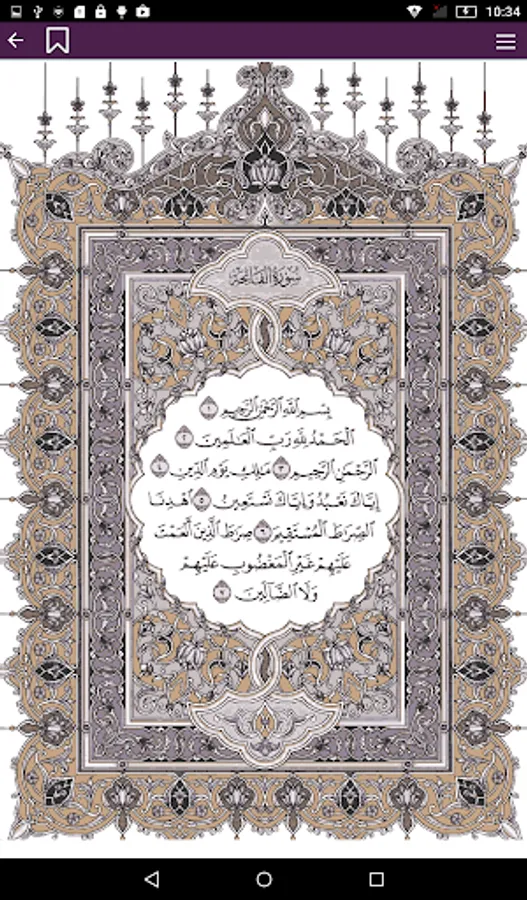 10:34
سُورَةُ الفَاتِحَةِ
بِسْمِ اللَّهِ الرَّحْمَٰنِ الرَّحِيمِ ١
الْحَمْدُ لِلَّهِ رَبِّ الْعَالَمِينَ ٢
الرَّحْمَٰنِ الرَّحِيمِ ٣ مَالِكِ يَوْمِ الدِّينِ ٤
إِيَّاكَ نَعْبُدُ وَإِيَّاكَ نَسْتَعِينُ ٥ اهْدِنَا
الصِّرَاطَ الْمُسْتَقِيمَ ٦ صِرَاطَ الَّذِينَ أَنْعَمْتَ
عَلَيْهِمْ غَيْرِ الْمَغْضُوبِ عَلَيْهِمْ
وَلَا الضَّالِّينَ ٧